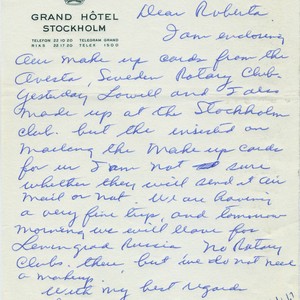 GRAND HÔTEL
STOCKHOLM
TELEFON 22 10 20 TELEGRAM GRAND
RIKS 22 17 20 TELEX 1500
Dear Roberta.
I am enclosing
our make up cards from the
Avesta, Sweden Rotary Club.
Yesterday Lowell and I also
made up at the Stockholm
club. but the insisted on
mailing the make up cards
for us I am not sure
whether they will send it air
mail or not. We are having
a very fine trip, and tomorrow
morning we will leave for
Leningrad Russia No Rotary
Clubs. there but we do not need
a makeup.
With my best regards